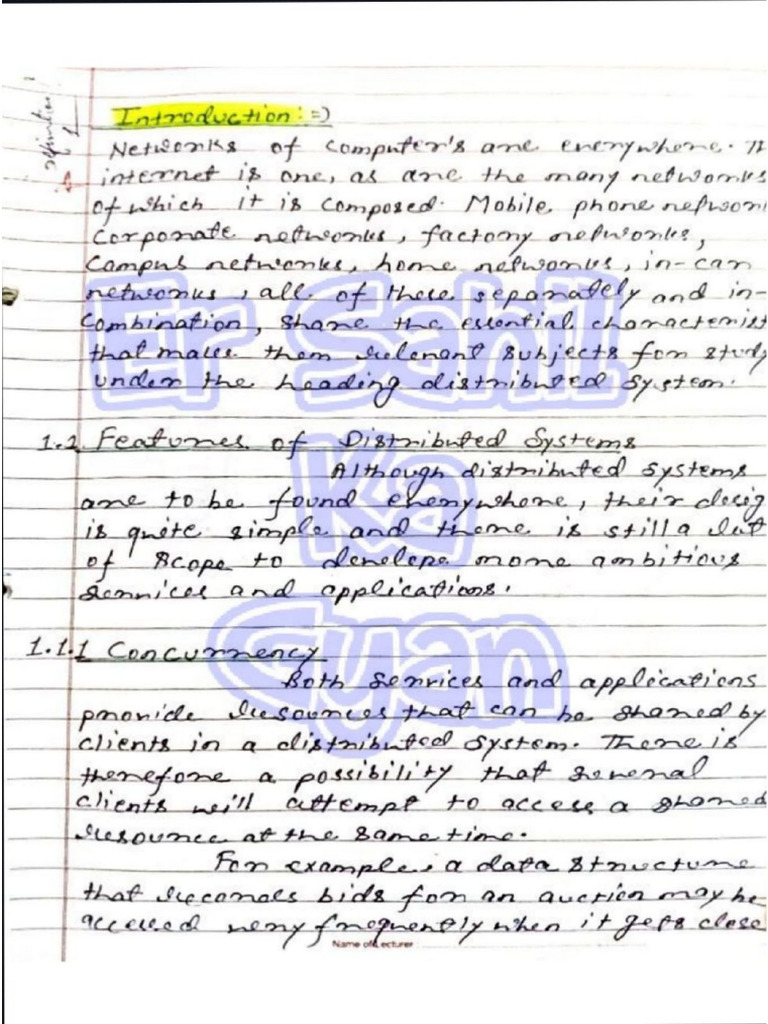 Definition 1
Introduction :=)
Networks of computer's are everywhere. Th
internet is one, as are the many networks
of which it is composed. Mobile phone networ
corporate networks, factory networks,
Campus networks, home networks, in-car
networks, all of these separately and in-
combination, share the essential characterist
that makes them relevant subjects for study
under the heading distributed system.
1.1 Features of Distributed Systems
Although distributed systems
are to be found everywhere, their desig
is quite simple and there is still a lot
of scope to develope more ambitious
services and applications.
1.1.1 Concurrency
Both services and applications
provide resources that can be shared by
clients in a distributed system. There is
therefore a possibility that several
clients will attempt to access a shared
resource at the same time.
For example, a data structure
that records bids for an auction may be
accessed very frequently when it gets close
Name of Lecturer
Er Sahil
Ka
Gyan